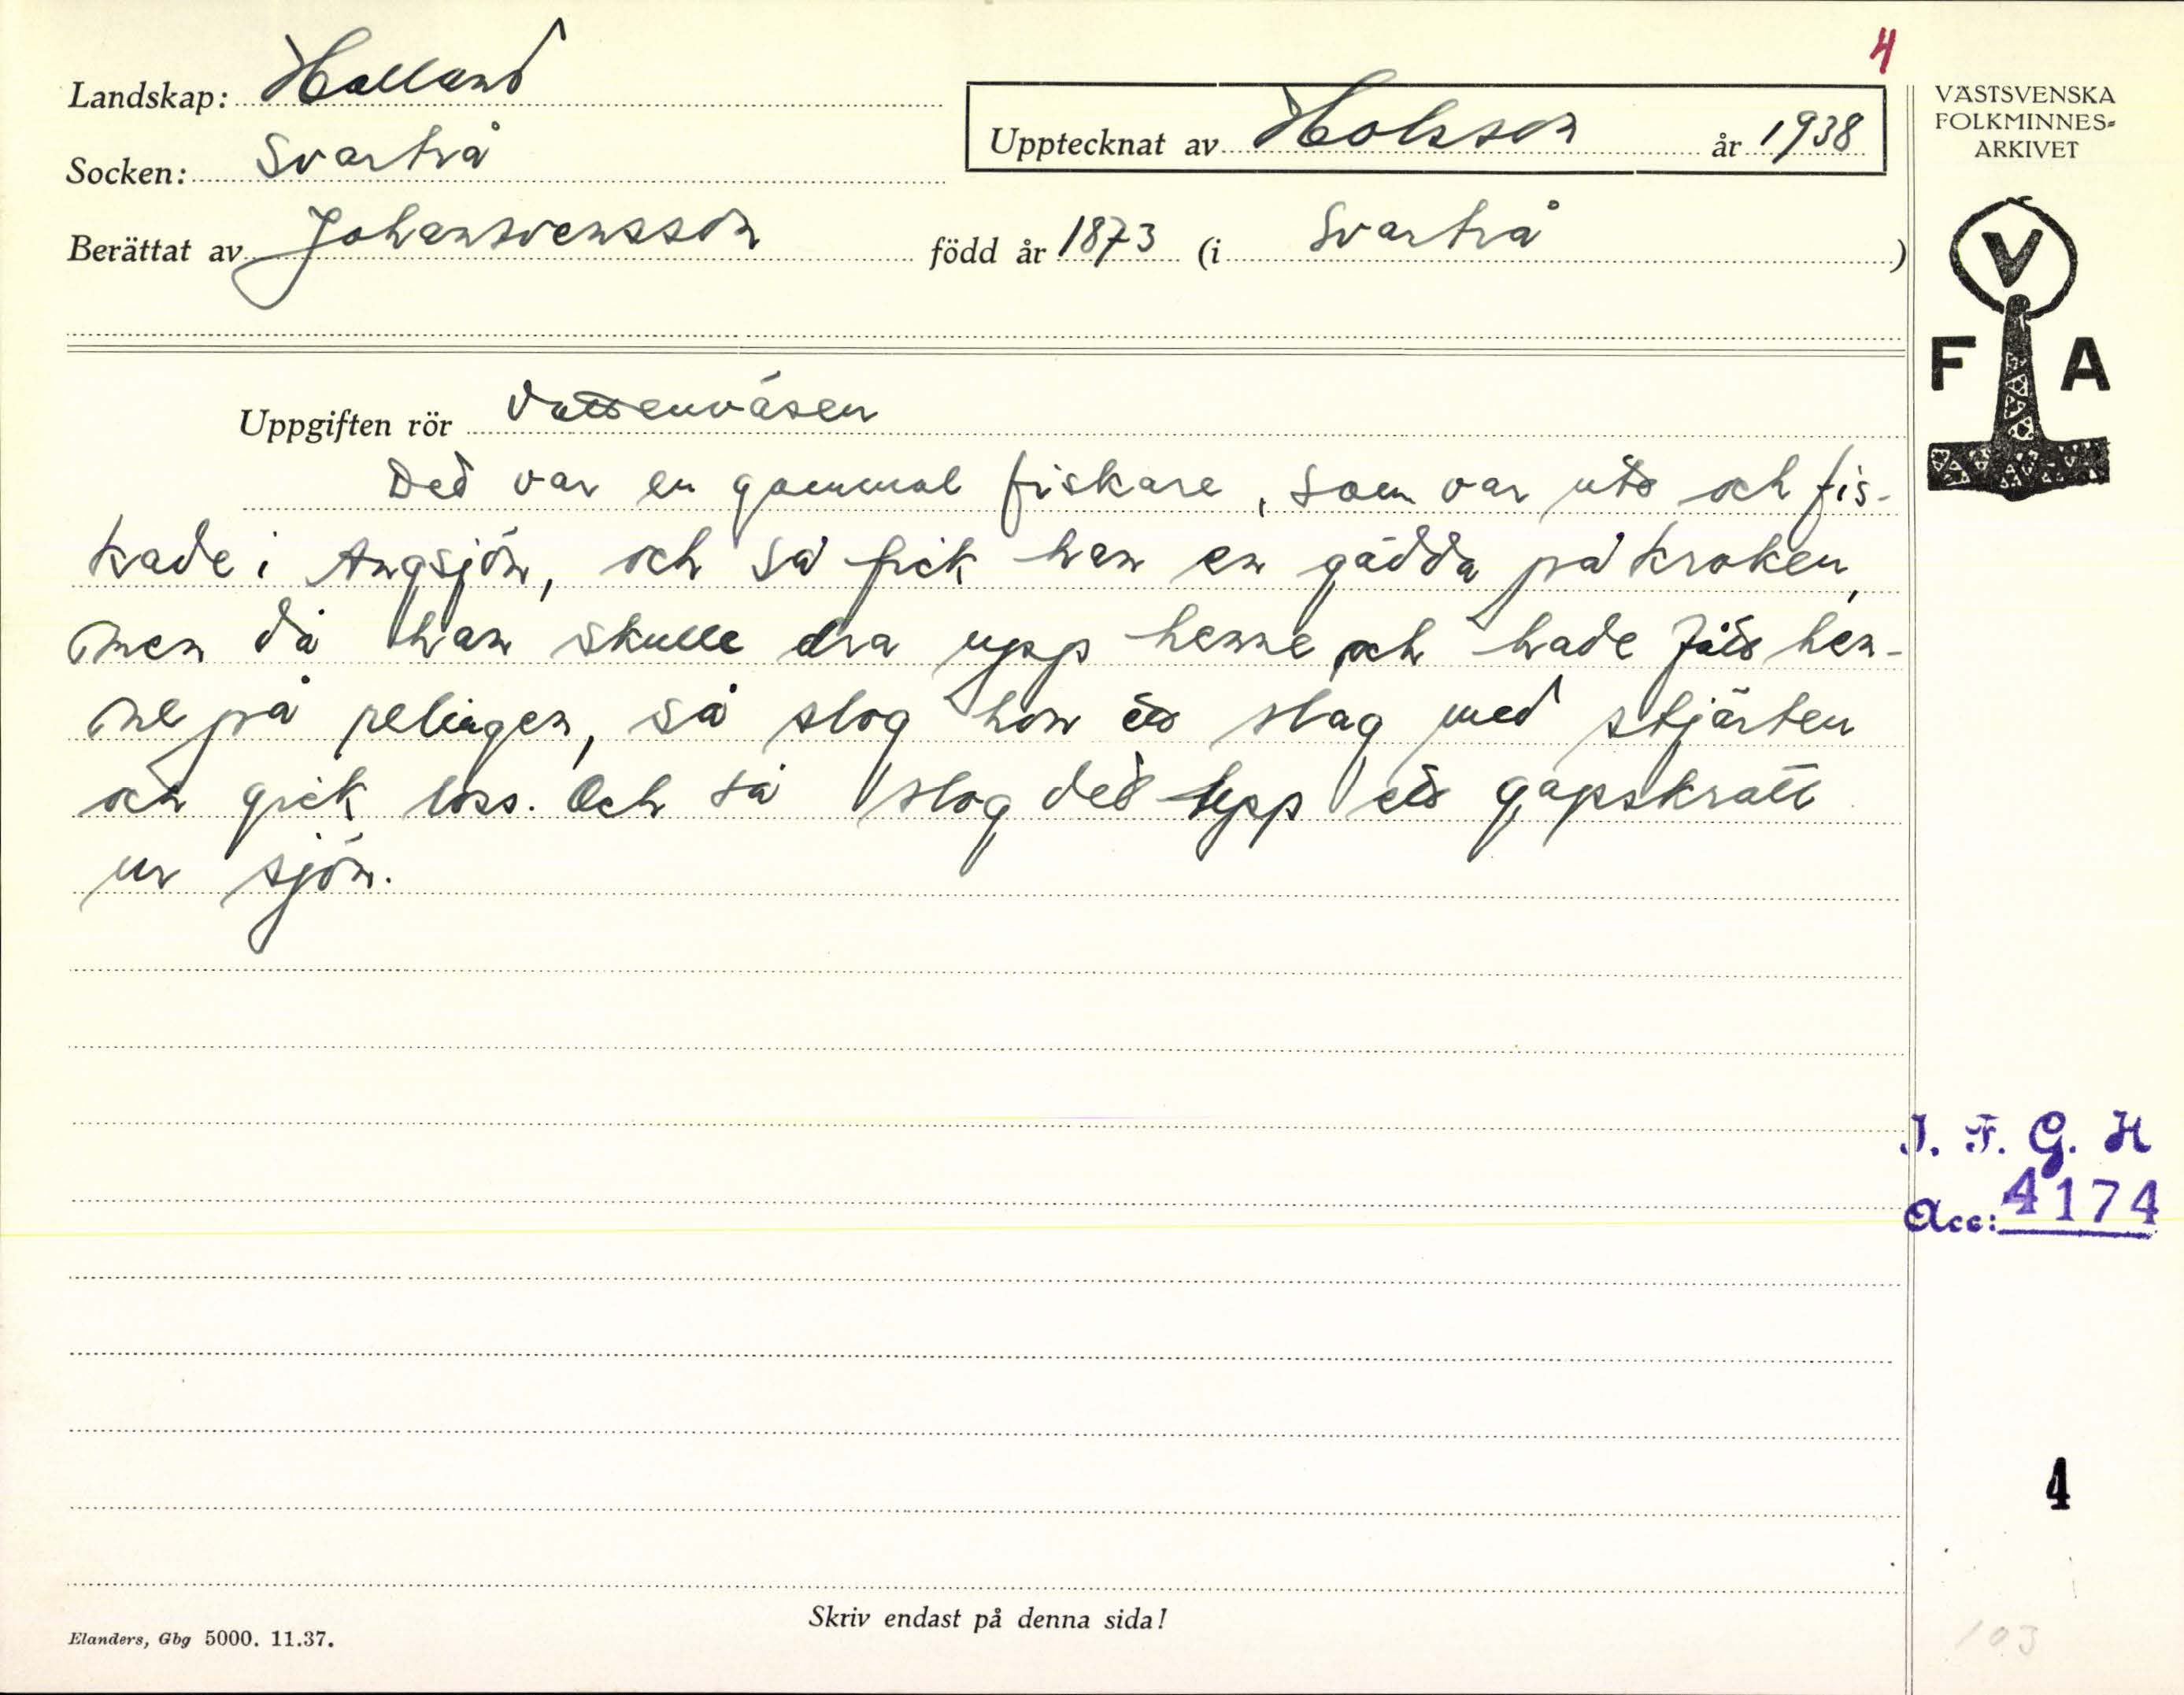 4
Landskap: Halland
Socken: Svartrå
Upptecknat av Holsson år 1938
Berättat av Johan Svensson född år 1873 (i Svartrå)
VÄSTSVENSKA
FOLKMINNES-
ARKIVET
V
F A
Uppgiften rör Vattenväsen
Det var en gammal fiskare, som var ute och fis-
kade i Ängsjön, och så fick han en gädda på kroken,
men då han skulle dra upp henne och hade fått hen-
ne på relingen, så slog hon ett slag med stjärten
och gick loss. Och så slog det upp ett gapskratt
ur sjön.
I. F. G. H
Acc: 4174
4
Skriv endast på denna sida!
Elanders, Gbg 5000. 11.37.
103